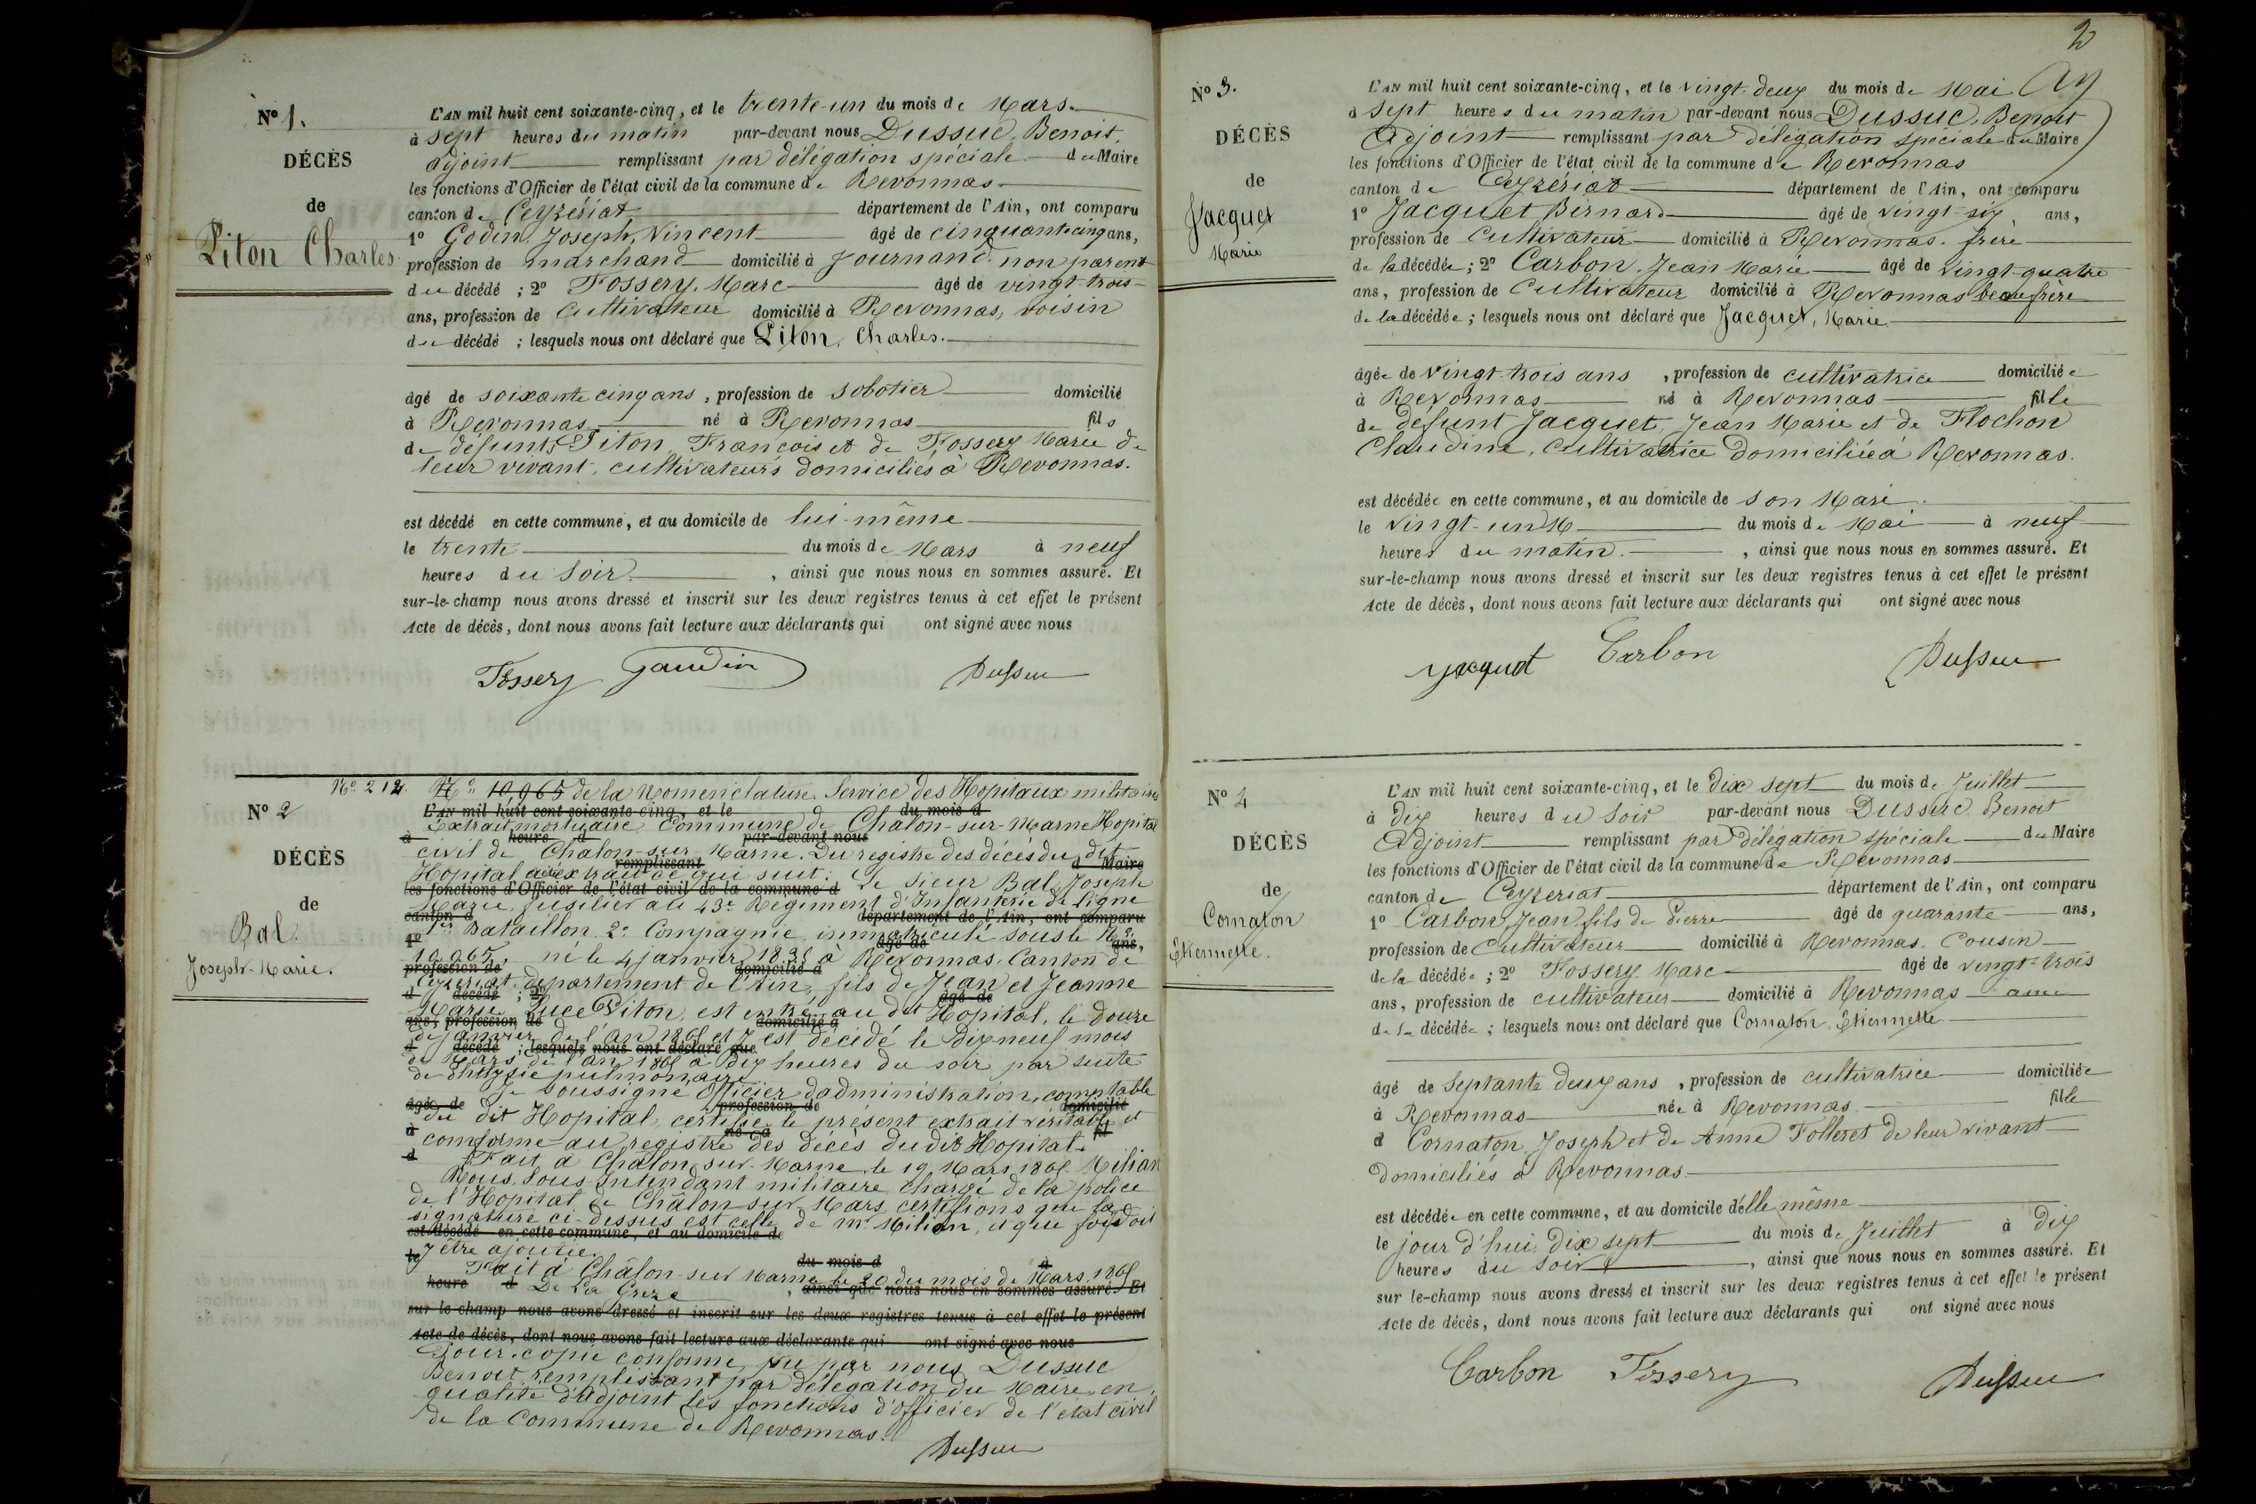 N° 1.
DÉCÈS
de
Piton Charles
L'AN mil huit cent soixante-cinq, et le trente-un du mois de Mars.
à sept heures du matin par-devant nous Dussuc, Benoit,
adjoint remplissant par délégation spéciale du Maire
les fonctions d'Officier de l'état civil de la commune de Revonnas
canton de Ceyzériat département de l'Ain, ont comparu
1° Godin, Joseph, Vincent âgé de cinquante cinq ans,
profession de marchand domicilié à Journand. non parent
du décédé ; 2° Fossery, Marc âgé de vingt-trois
ans, profession de cultivateur domicilié à Revonnas, voisin
du décédé ; lesquels nous ont déclaré que Piton, Charles.
âgé de soixante cinq ans, profession de sobotier domicilié
à Revonnas né à Revonnas fils
de défunts Piton, François et de Fossery Marie de
leur vivant, cultivateurs domiciliés à Revonnas.
est décédé en cette commune, et au domicile de lui-même
le trente du mois de Mars à neuf
heures du soir , ainsi que nous nous en sommes assuré. Et
sur-le-champ nous avons dressé et inscrit sur les deux registres tenus à cet effet le présent
Acte de décès, dont nous avons fait lecture aux déclarants qui ont signé avec nous
Fossery Gaudin Dussuc
N° 2
DÉCÈS
de
Bal.
Joseph-Marie.
N° 212. N° 10,965 de la Nomenclature. Service des Hopitaux militaires
L'AN mil huit cent soixante-cinq, et le du mois d
Extrait mortuaire Commune de Chalon-sur-Marne Hopital
à heure d par-devant nous
civil de Chalon-sur-Marne. Du registre des décès du dit
remplissant d Maire
Hopital a été extrait ce qui suit: Le sieur Bal, Joseph
les fonctions d'Officier de l'état civil de la commune d
Marie, fusilier au 43e Régiment d'Infanterie de ligne
canton d département de l'Ain, ont comparu
1er Bataillon 2e Compagnie immatriculé sous le N°
1° âgé de ans,
10,965, né le 4 janvier 1838 à Revonnas, Canton de
profession de domicilié à
Ceyzeriat, département de l'Ain, fils de Jean et Jeanne
d décédé ; 2° âgé de
Marie Luce Piton, est entré au dit Hopital, le douze
ans, profession de domicilié à
de janvier de l'an 1865 et y est décédé le dix neuf mois
d décédé ; lesquels nous ont déclaré que
de Mars de l'an 1865 à dix heures du soir par suite
de Phthysie pulmonaire
Je soussigné Officier d'administration, comptable
âgé de profession de domicilié
du dit Hopital, certifie le présent extrait véritable et
à né à fil
conforme au registre des décès du dit Hopital.
d
Fait à Châlon-sur-Marne le 19 Mars 1865 Milian
Nous Sous Intendant militaire chargé de la police
de l'Hopital de Châlon-sur Mars certifions que la
signature ci-dessus est celle de Mr Milian, et que foi doit
est décédé en cette commune, et au domicile de
y être ajoutée.
le du mois d à
Fait à Châlon-sur Marne le 20 du mois de Mars 1865
heure d De La Greze , ainsi que nous nous en sommes assuré. Et
sur-le-champ nous avons dressé et inscrit sur les deux registres tenus à cet effet le présent
Acte de décès, dont nous avons fait lecture aux déclarants qui ont signé avec nous
Pour copie conforme, vu par nous Dussuc
Benoit remplissant par délégation du Maire en
qualité d'adjoint les fonctions d'officier de l'état civil
de la Commune de Revonnas.
Dussuc
2
N° 3.
DÉCÈS
de
Jacquet
Marie
L'AN mil huit cent soixante-cinq, et le vingt-deux du mois de Mai
à sept heures du matin par-devant nous Dussuc, Benoit
Adjoint remplissant par délégation spéciale du Maire
les fonctions d'Officier de l'état civil de la commune de Revonnas
canton de Ceyzériat département de l'Ain, ont comparu
1° Jacquet Bernard âgé de vingt-six ans,
profession de cultivateur domicilié à Revonnas. frère
de la décédée ; 2° Carbon, Jean Marie âgé de vingt-quatre
ans, profession de Cultivateur domicilié à Revonnas beaufrère
de la décédée ; lesquels nous ont déclaré que Jacquet, Marie
âgée de vingt-trois ans , profession de cultivatrice domiciliée
à Revonnas né à Revonnas fille
de défunt Jacquet, Jean Marie et de Flochon
Claudine, cultivatrice domiciliée à Revonnas.
est décédée en cette commune, et au domicile de son Mari
le vingt-un du mois de Mai à neuf
heures du matin. , ainsi que nous nous en sommes assuré. Et
sur-le-champ nous avons dressé et inscrit sur les deux registres tenus à cet effet le présent
Acte de décès, dont nous avons fait lecture aux déclarants qui ont signé avec nous
Jacquet Carbon Dussuc
N° 4
DÉCÈS
de
Cornaton
Etiennette.
L'AN mil huit cent soixante-cinq, et le dix sept du mois de Juillet
à dix heures du soir par-devant nous Dussuc Benoit
Adjoint remplissant par délégation spéciale du Maire
les fonctions d'Officier de l'état civil de la commune de Revonnas
canton de Ceyzeriat département de l'Ain, ont comparu
1° Carbon, Jean fils de Pierre âgé de quarante ans,
profession de cultivateur domicilié à Revonnas. Cousin
de la décédée ; 2° Fossery Marc âgé de vingt-trois
ans, profession de cultivateur domicilié à Revonnas ami
de la décédée ; lesquels nous ont déclaré que Cornaton, Etiennette
âgé de septante deux ans , profession de cultivatrice domiciliée
à Revonnas née à Revonnas fille
d Cornaton, Joseph et de Anne Folleret de leur vivant
domiciliés à Revonnas
est décédée en cette commune, et au domicile d'elle même
le jour d'hui, dix sept du mois de Juillet à dix
heures du soir , ainsi que nous nous en sommes assuré. Et
sur le-champ nous avons dressé et inscrit sur les deux registres tenus à cet effet le présent
Acte de décès, dont nous avons fait lecture aux déclarants qui ont signé avec nous
Carbon Fossery Dussuc